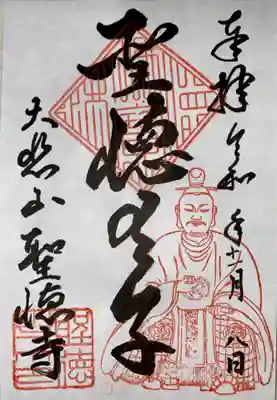 奉拝 令和 年十一月 八日
聖徳太子
大悲山聖徳寺